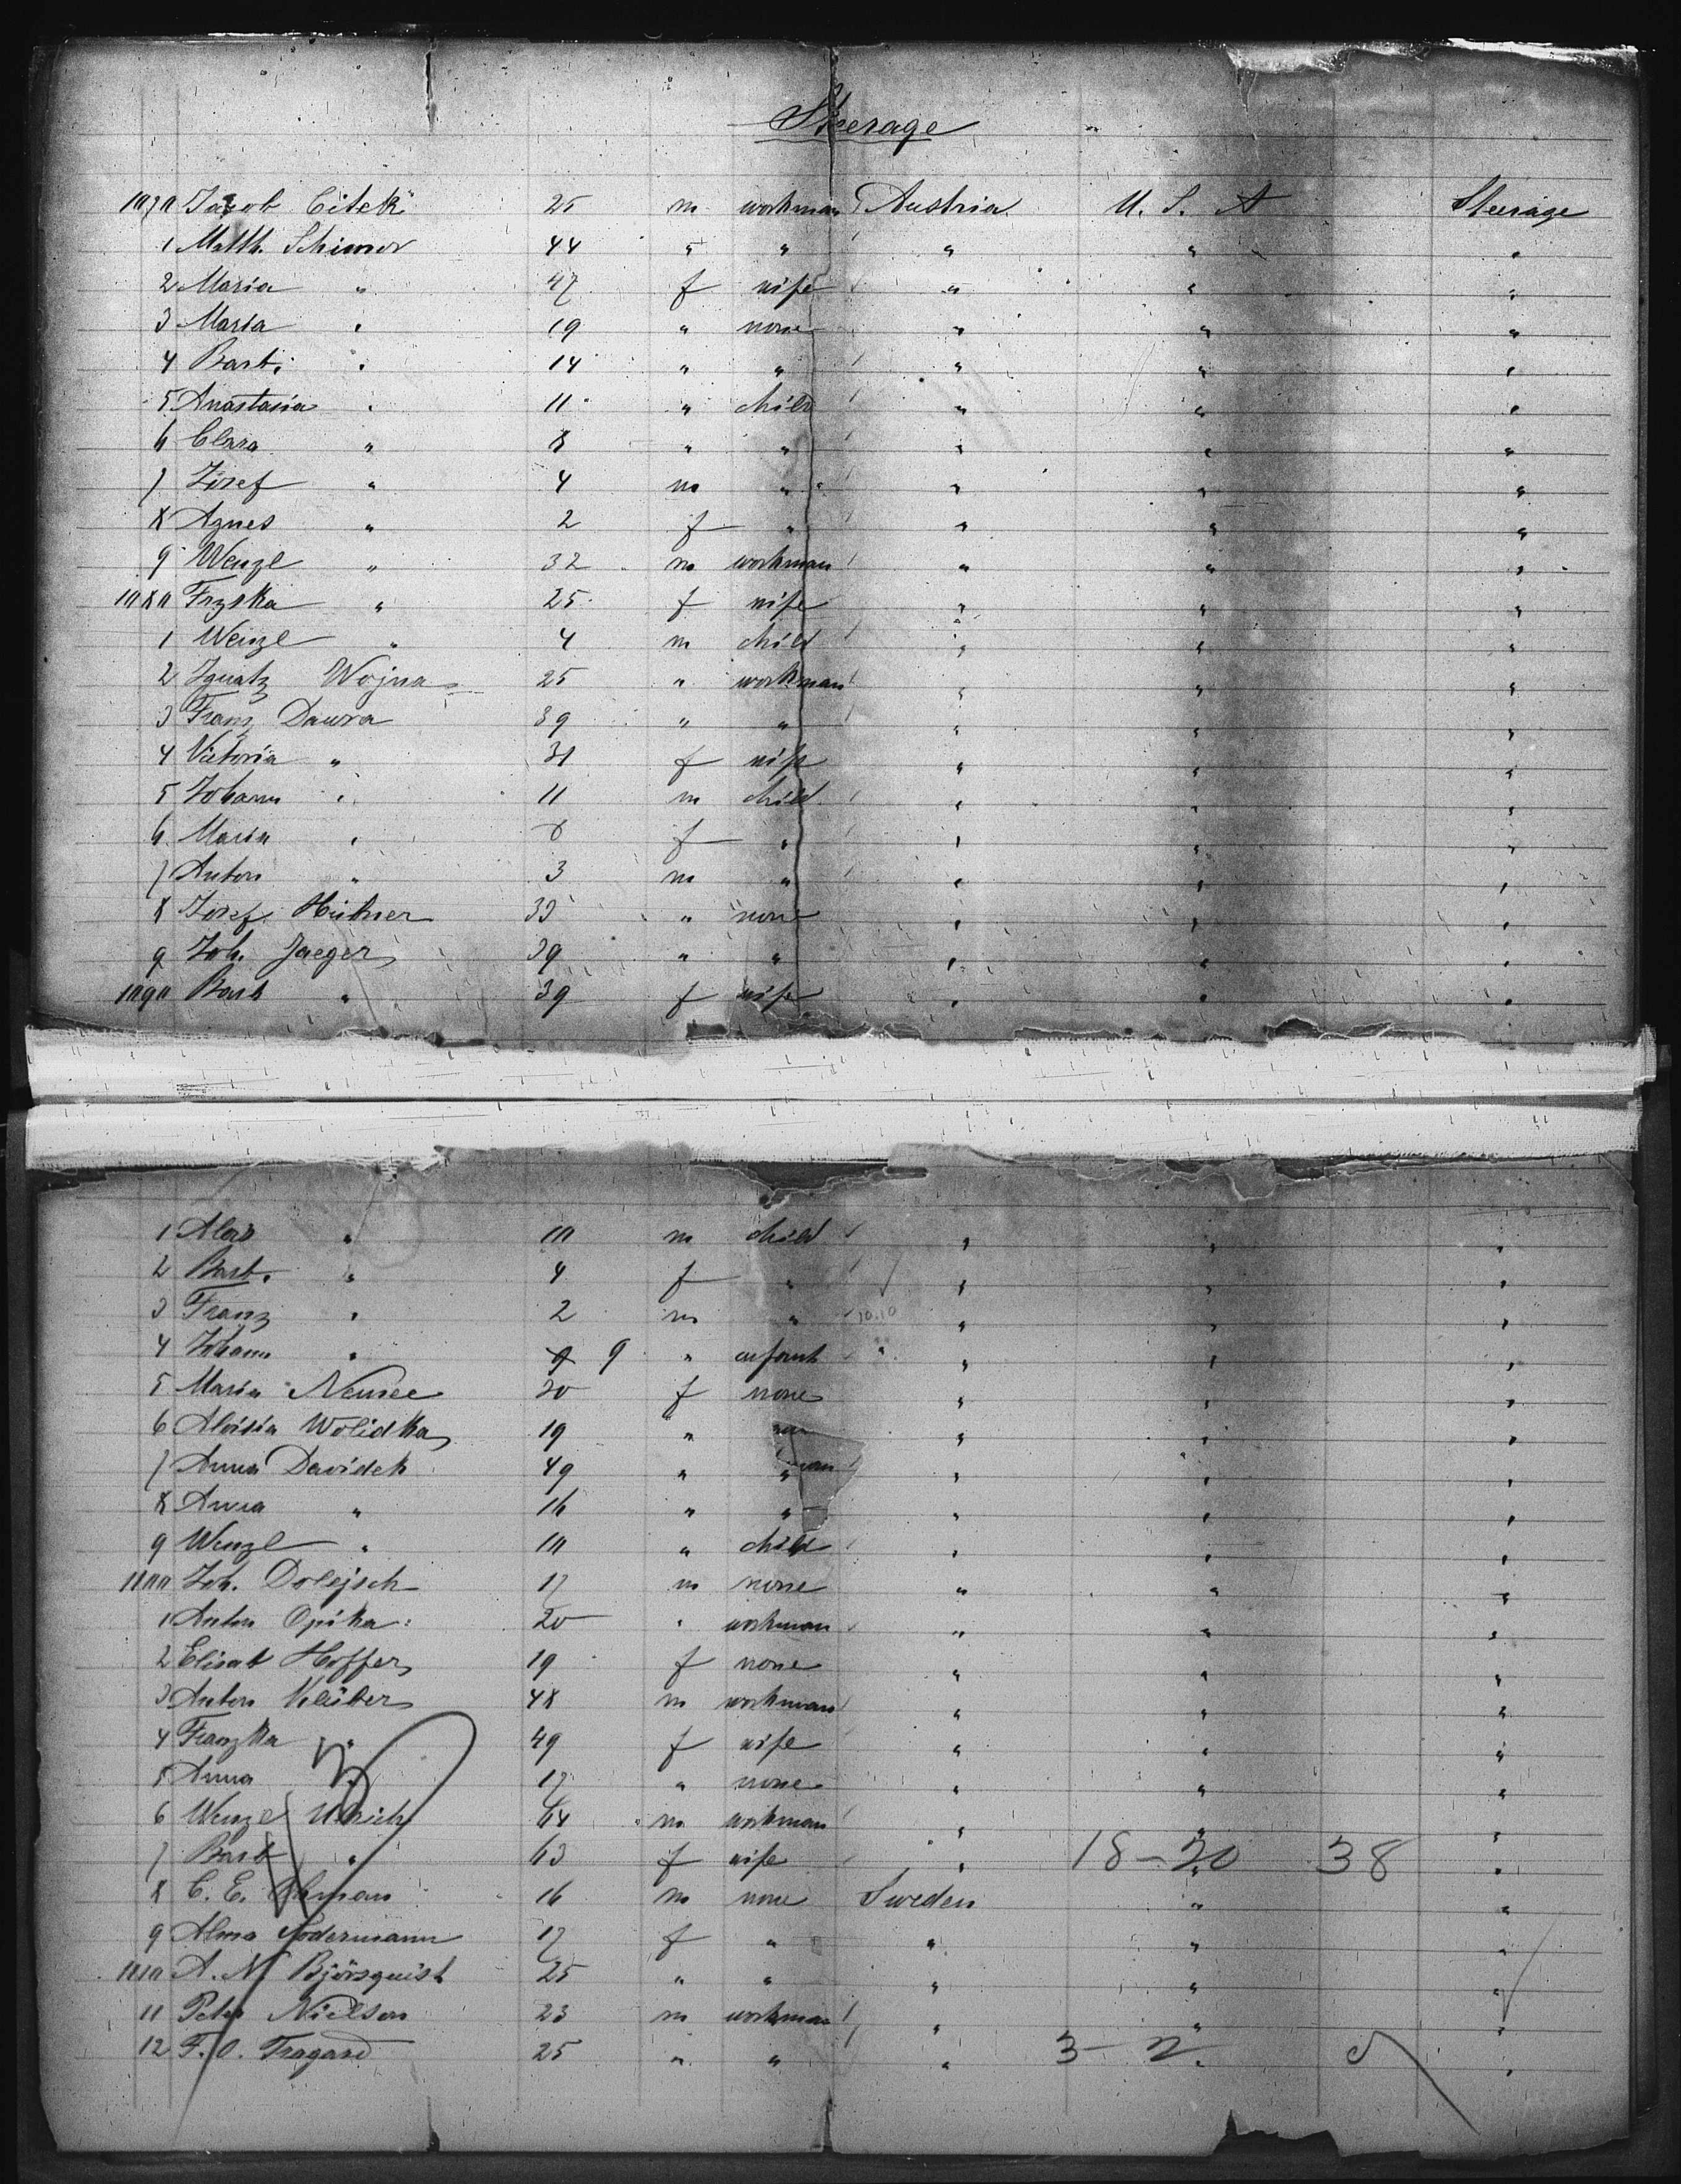 Steerage
1070 Jacob Citek 25 m workman Austria U. S. A Steerage
1 Matth. Schimor 44 " " " " "
2 Maria " 47 f wife " " "
3 Maria " 19 " none " " "
4 Barb. " 14 " " " " "
5 Anastasia " 11 " child " " "
6 Clara " 8 " " " " "
7 Josef " 4 m " " " "
8 Agnes " 2 f " " " "
9 Wenzl " 32 m workman " " "
1080 Frzska " 25 f wife " " "
1 Wenzl " 4 m child " " "
2 Ignatz Wojna 25 " workman " " "
3 Franz Dawra 39 " " " " "
4 Victoria " 31 f wife " " "
5 Johann " 11 m child " " "
6 Maria " 8 f " " " "
7 Anton " 3 m " " " "
8 Josef Hübner 33 " none " " "
9 Joh. Jaeger 39 " " " " "
1090 Barb " 39 f wife " " "
1 Alois " 10 m child " " "
2 Barb. " 4 f " " " "
3 Franz " 2 m " 10.10 " " "
4 Johann " 9 9 " infant " " "
5 Maria 20 f none " " "
6 Aloisia Wolidka 19 " " " "
7 Anna Davidek 49 " " " " "
8 Anna " 16 " " " " "
9 Wenzl " 10 " child " " "
1100 Joh. Dolejsch 17 m none " " "
1 Anton Opika 20 " workman " " "
2 Elisab Hoffer 19 f none " " "
3 Anton Klüber 48 m workman " " "
4 Franzka " 49 f wife " " "
5 Anna " 17 " none " " "
6 Wenzel Ulrich 64 m workman " " "
7 Barb " 63 f wife " 18-20 " 38 "
8 C. E. 16 m none Sweden " "
9 Alma Södermann 17 f " " " "
1110 A. M. Björsquist 25 " " " " "
11 Peter Nielson 23 m workman " " "
12 F. O. Tragard 25 " " " 3-2 "